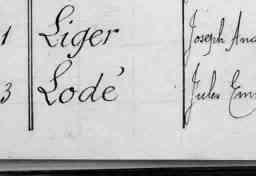 1 Liger Joseph
3 Lodé Jules